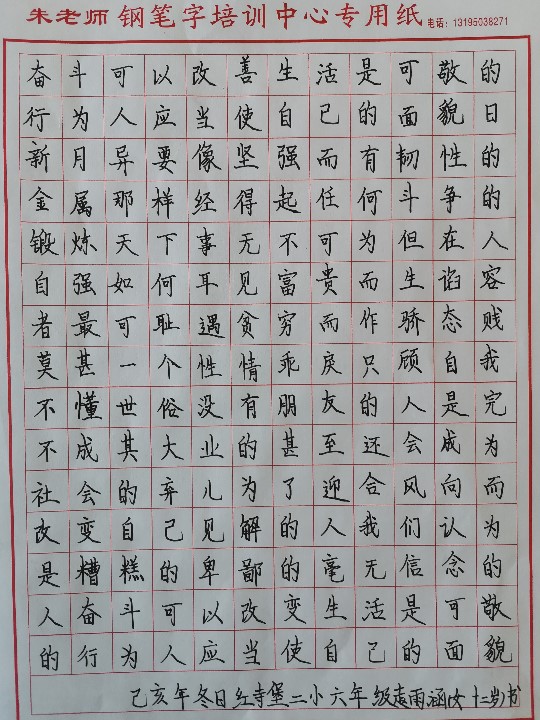 朱老师钢笔字培训中心专用纸 电话：13195038271
奋斗可以改善生活是可敬的
行为人应当使自己的面貌日
新月异要像坚强而有韧性的
金属那样经得起任何斗争的
锻炼天下事无不可为但在人
自强如何耳见富贵而生谄容
者最可耻遇贫穷而作骄态贱
莫甚一个性情乖戾只顾自我
不懂世俗没有朋友的人是完
不成其大业的甚至还会成为
社会的弃儿为了迎合风向而
改变自己见解的人我们认为
是糟糕的卑鄙的毫无信念的
人奋斗可以改变生活是可敬
的行为人应当使自己的面貌
己亥年冬日红寺堡二小六年级袁雨涵(女十二岁)书